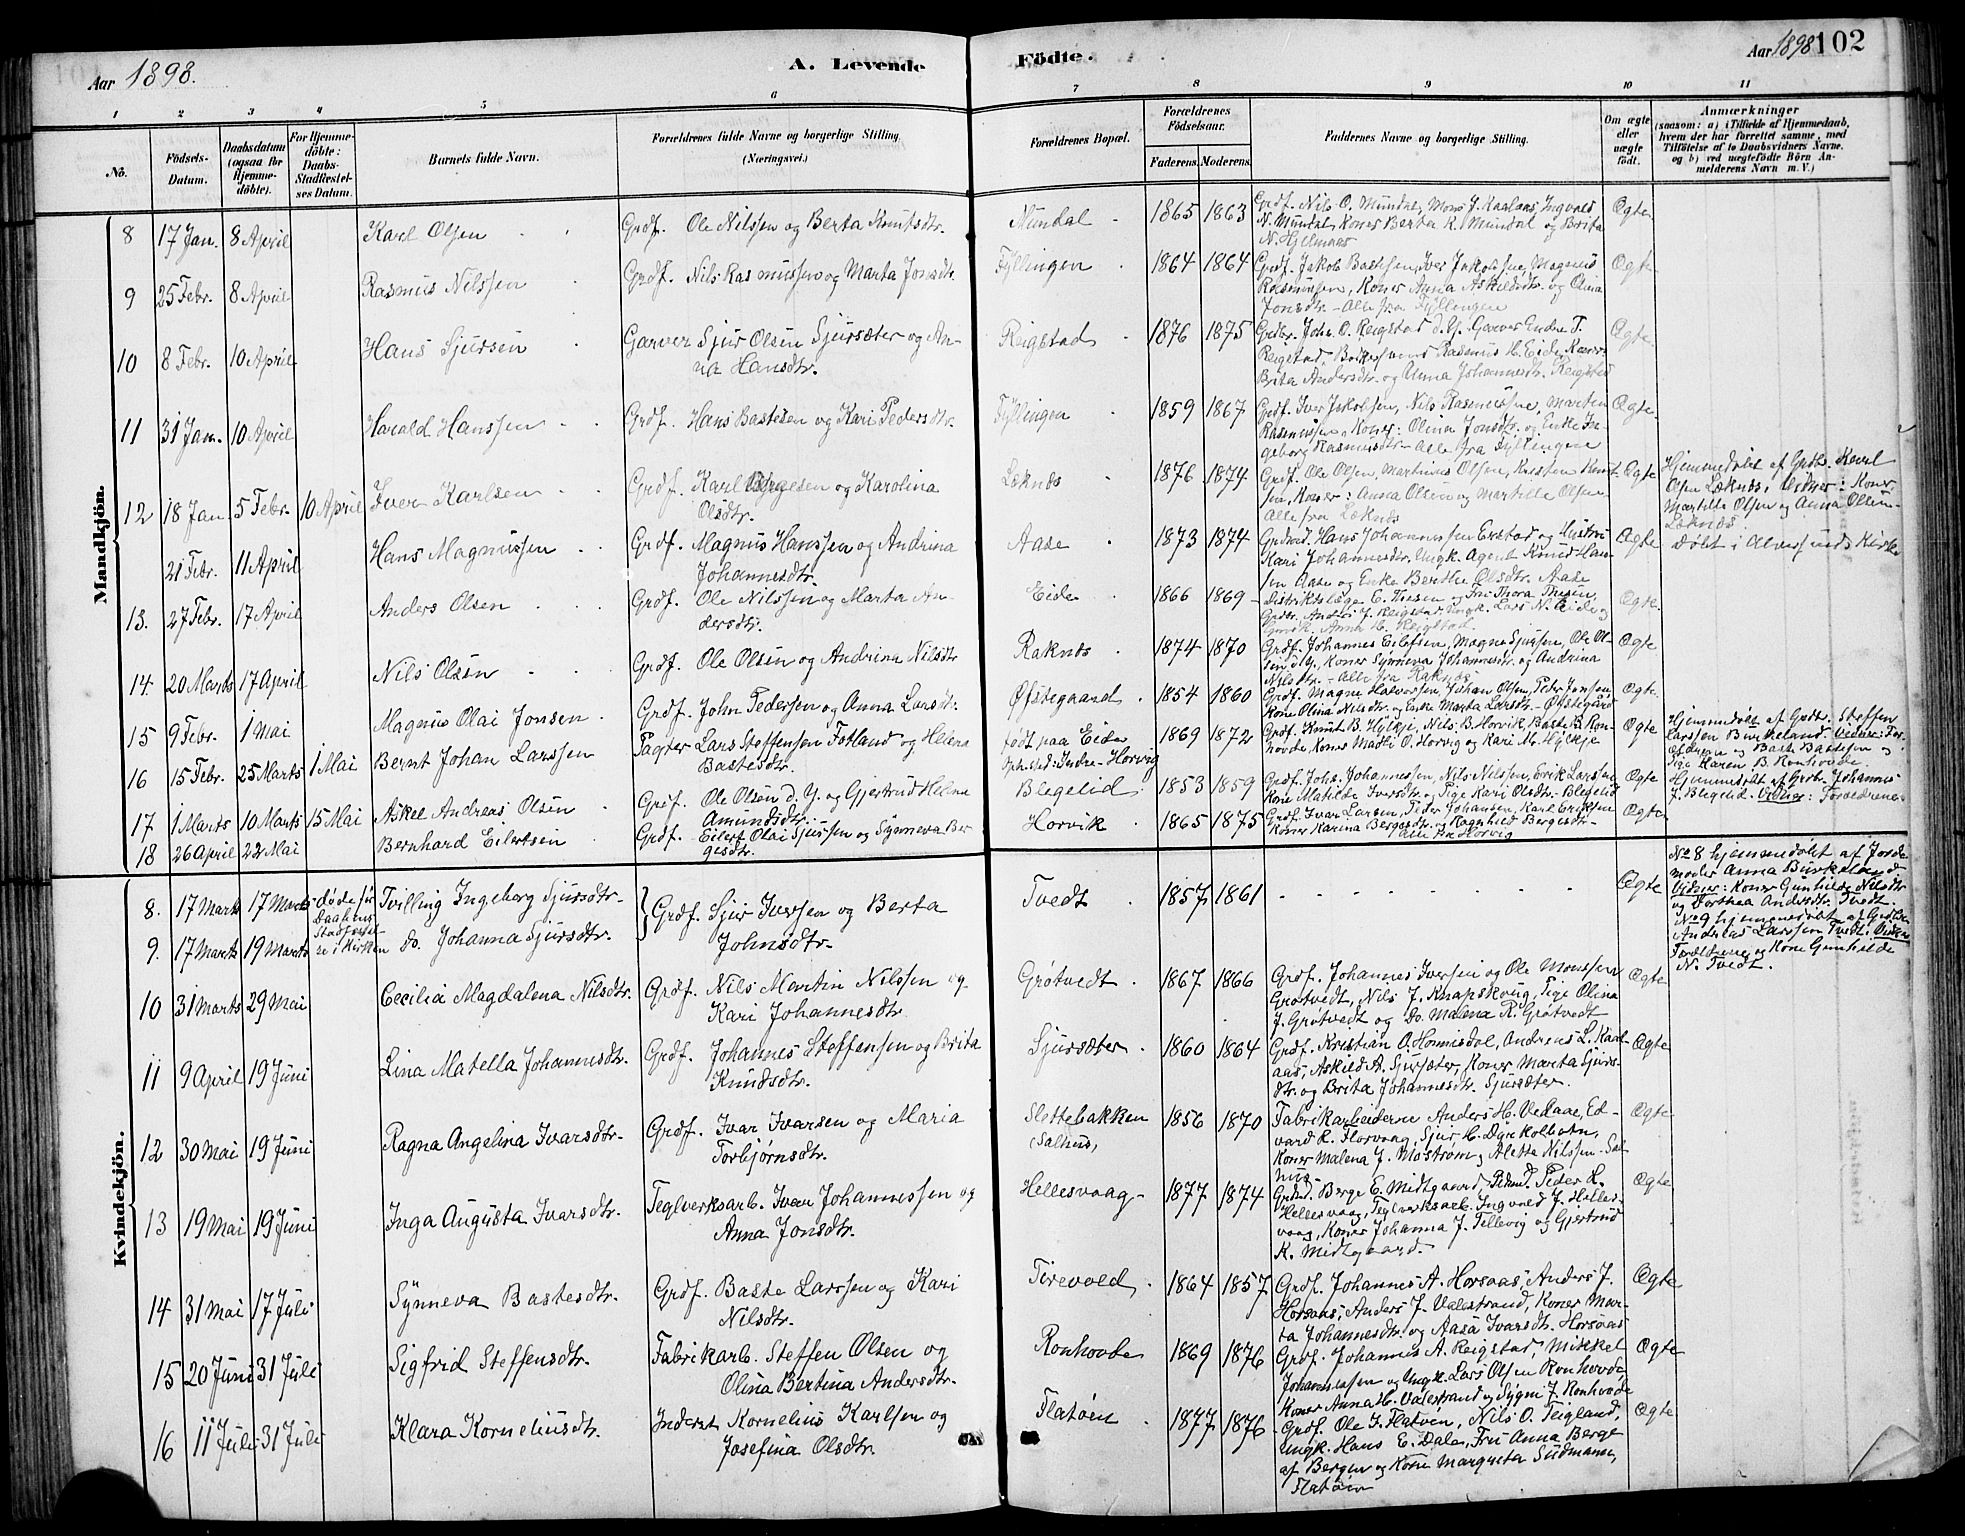 Aar 1898.
A. Levende
Födte.
Aar 1898 102
1 2 3 4 5 6 7 8 9 10 11
No.
Födsels-
Datum.
Daabsdatum
(ogsaa for
Hjemme-
döbte).
For Hjemme-
döbte:
Daabs-
Stadfæstel-
ses Datum.
Barnets fulde Navn.
Forældrenes fulde Navne og borgerlige Stilling.
(Næringsvei.)
Forældrenes Bopæl.
Forældrenes
Födselsaar.
Faderens. Moderens.
Faddernes Navne og borgerlige Stilling.
Om ægte
eller
uægte
født.
Anmærkninger
(saasom: a) i Tilfælde af Hjemmedaab,
hvem der har forrettet samme, med
Tilföielse af to Daabsvidners Navne,
og b) ved uægtefödte Börn An-
melderens Navn m. V.)
Mandkjön.
8 17 Jan. 8 April Karl Olsen Grdf. Ole Nilssen og Berta Knutsdtr. Mundal 1865 1863 Grdf. Nils O. Mundal, Mons J. Kaalaas, Ingvald
N. Mundal, Koner Berta K. Mundal og Brita
N. Hjelmaas Ægte
9 25 Febr. 8 April Rasmus Nilssen Grdf. Nils Rasmussen og Marta Jonsdtr. Fyllingen 1864 1864 Grdf. Jakob Bastesen, Iver Jakobsen, Magnus
Rasmussen, Koner Anna Askildsdtr. og Olina
Jonsdtr. - Alle fra Fyllingen Ægte
10 8 Febr. 10 April Hans Sjursen Garver Sjur Olsen Sjursæter og An-
na Hansdtr. Reigstad 1876 1875 Grdbr. Johs. O. Reigstad d.Y. Garver Endre T.
Reigstad, Rasmus H. Eide, Koner
Brita Andersdtr. og Anna Johannesdtr. Reigstad Ægte
11 31 Jan. 10 April Harald Hanssen Grdf. Hans Bastesen og Kari Pedersdtr. Fyllingen 1859 1867 Grdf. Iver Jakobsen, Nils Rasmussen, Marten
Rasmussen, Koner: Olina Jonsdtr. og Enke In-
geborg Rasmusdtr. - Alle fra Fyllingen Ægte
12 18 Jan. 5 Febr. 10 April Iver Karlsen Grdf. Karl og Karolina
Olsdtr. Læknes 1876 1874 Grdf. Ole Olsen, Martinus Olsen, Kristen Knut-
sen, Koner: Anna Olsen og Martille Olsen,
Alle fra Læknes Ægte Hjemmedøbt af Grdbr. Karl
Olsen Læknes, Vidner: Koner
Martille Olsen og Anna Olsen
Læknes.
21 Febr. 11 April Hans Magnussen Grdf. Magnus Hanssen og Andrina
Johannesdtr. Aase 1873 1874 Grdmd. Hans Johannessen Erstad og Hustru
Kari Johannesdtr. Ungk. Agent Knud Han-
sen Aase og Enke Berthe Olsdtr. Aase Ægte Døbt i Alversunds Kirke
13. 27 Febr. 17 April Anders Olsen Grdf. Ole Nilssen og Marta An-
dersdtr. Eide 1866 1869 Distriktslæge E. Thesen og Fru Thora Thesen,
Grdbr. Anders J. Reigstad, Ungk. Lars N. Eide og
Anna H. Reigstad Ægte
14. 20 Marts 17 April Nils Olsen Grdf. Ole Olsen og Andrina Nilsdtr Raknes 1874 1870 Grdf. Johannes Eilefsen, Magne Sjursen, Ole Ol-
sen d.Y., Koner Synneva Johannesdtr. og Andrina
Nilsdtr. - Alle fra Raknes Ægte
15 9 Febr. 1 Mai Magnus Olai Jonsen Grdf. John Pedersen og Anna Larsdtr. Øfstegaard 1854 1860 Grdf. Magne Halvorsen, Johan Olsen, Peder Jensen,
Kone Olina Nilsdtr. og Enke Marta Larsdtr. Øfstegård Ægte
16 15 Febr. 25 Marts 1 Mai Bernt Johan Larssen Pagter Lars Steffensen Fotland og Helena
Bastesdtr. født paa Eide
Opholdsted: Indre-Horvig 1869 1872 Grdf. Knut B. Hylkje, Nils B. Horvik, Baste B. Ron-
hovde, Koner Madli O. Horvig og Kari M. Hylkje Ægte Hjemmedøbt af Grdbr. Steffen
Larssen Birkeland. Vidner: For-
ældrene og Baste Bastesen og
Pige Karen B. Ronhovde.
17 1 Marts 10 Marts 15 Mai Askel Andreas Olsen Grdf. Ole Olsen d. Y. og Gjertrud Helena
Amundsdtr. Blegelid 1853 1859 Grdf. Johs. Johannessen, Nils Nilssen, Erik Larssen
Kone Matilde Iversdtr. og Pige Kari Olsdtr. Blegelid Ægte Hjemmedøbt af Grdb. Johannes
J. Blegelid. Vidner: Forældrene
18 26 April 22 Mai Bernhard Eilertsen Grdf. Eilert Olai Sjursen og Synneva Ber-
gesdtr. Horvik 1865 1875 Grdf. Ivar Larsen, Peder Johansen, Karl Eriksen
Koner Karina Bergesdtr. og Ragnhild Bergesdtr.
Alle fra Horvig Ægte
Kvindekjön.
8. 17 Marts 17 Marts døde før
Daabens
Stadfæstel-
se i Kirken Tvilling Ingeborg Sjursdtr. Grdf. Sjur Iversen og Berta
Johnsdtr. Tvedt 1857 1861 Ægte No 8 hjemmedøbt af Jorde-
moder Anna Birkeland
Vidner: Koner Gunhilde Nilsdtr
og Dorthea Andersdtr. Tvedt.
9. 17 Marts 19 Marts do. Johanna Sjursdtr. No 9 hjemmedøbt af Grdbr.
Andreas Larssen Tvedt. Vidner
Forældrene og Kone Gunhilde
N. Tvedt.
10 31 Marts 29 Mai Cecilia Magdalena Nilsdtr. Grdf. Nils Martin Nilssen og
Kari Johannesdtr. Grøtvedt 1867 1866 Grdf. Johannes Iversen og Ole Monssen
Grøtvedt, Nils J. Knapskoug, Pige Olina
J. Grøtvedt og Do. Malena R. Grøtvedt Ægte
11 9 April 19 Juni Lina Matella Johannesdtr. Grdf. Johannes Steffensen og Brita
Knudsdtr. Sjursæter 1860 1864 Grdf. Kristian O. Honnisdal, Andreas L. Kaal-
aas, Askild A. Sjursæter, Koner Marita Sjurs-
dtr. og Brita Johannesdtr. Sjursæter. Ægte
12 30 Mai 19 Juni Ragna Angelina Ivarsdtr. Grdf. Ivar Ivarsen og Maria
Torbjørnsdtr. Slettebakken
Salhus, 1856 1870 Fabrikarbeiderne Anders H. Vedaae, Ed-
vard R. Florvaag, Sjur H. Dyrkolbotn,
Koner Malena J. Mostrøm og Aletta Nilssen - Sal-
hus Ægte
13 19 Mai 19 Juni Inga Augusta Ivarsdtr. Teglverksarb. Ivar Johannessen og
Anna Jonsdtr. Hellesvaag 1877 1874 Grdmd. Berge E. Midtgaard, Peder L.
Hellesvaag, Teglverksarb. Ingvald J. Helles-
vaag, Koner Johanna J. Tellevig og Gjertrud
K. Midtgaard. Ægte
14 31 Mai 17 Juli Synneva Bastesdtr. Grdf. Baste Larssen og Kari
Nilsdtr. Tirevold 1864 1857 Grdf. Johannes A. Horsaas, Anders J.
Horsaas, Anders J. Valestrand, Koner Mar-
ta Johannesdtr. og Aasa Ivarsdtr. Horsaas Ægte
15 20 Juni 31 Juli Sigfrid Steffensdtr. Fabrikarb. Steffen Olsen og
Olina Bertina Andersdtr. Ronhovde 1869 1876 Grdf. Johannes A. Reigstad, Mikkel
Johannessen og Ungk. Lars Olsen Ronhovde
Koner Anna H. Valestrand og Sygni J. Ronhovde Ægte
16 11 Juli 31 Juli Klara Korneliusdtr. Inderst Kornelius Karlsen og
Josefina Olsdtr. Flatøen 1877 1876 Grdf. Ole J. Flatøen, Nils O. Teigland,
Ungk. Hans E. Dale, Fru Anna Berge
af Bergen og Kone Margreta Sudmann,
Flatøen Ægte